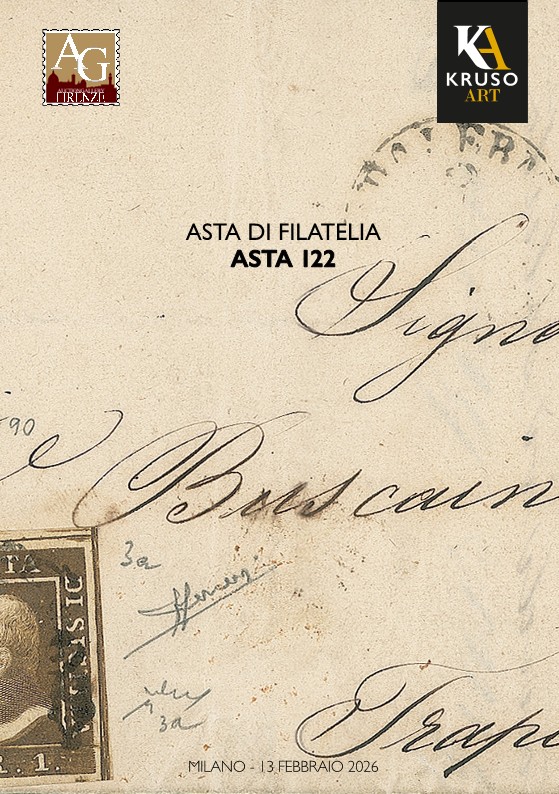 AG
AUCTION GALLERY
FIRENZE
KA
KRUSO
ART
ASTA DI FILATELIA
ASTA 122
Signo
90
Buscain
3a
3a
Trapa
TA
UNISIC
R. 1.
MILANO - 13 FEBBRAIO 2026